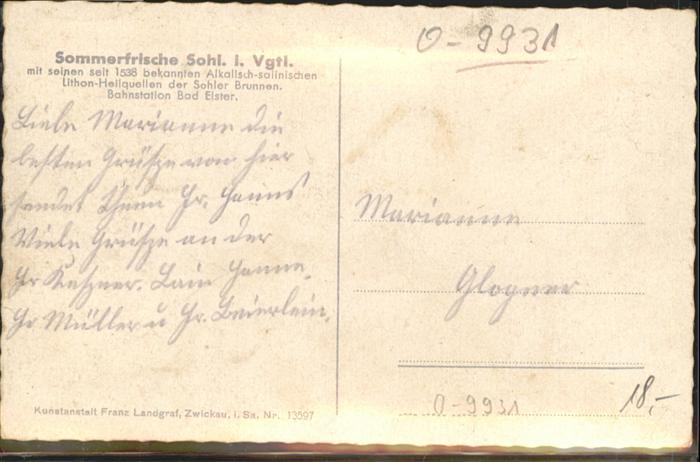 O-9931
Sommerfrische Sohl. i. Vgtl.
mit seinen seit 1538 bekannten Alkalisch-salinischen
Lithon-Heilquellen der Sohler Brunnen.
Bahnstation Bad Elster.
Liebe Marianne die
besten Grüsze von hier
sendet Hr. Hanns
Viele Grüsze an der
Hr Hanne.
Hr Müller u Hr. Beierlein.
Marianne
Glogner
O-9931
18,-
Kunstanstalt Franz Landgraf, Zwickau, i. Sa. Nr. 13597